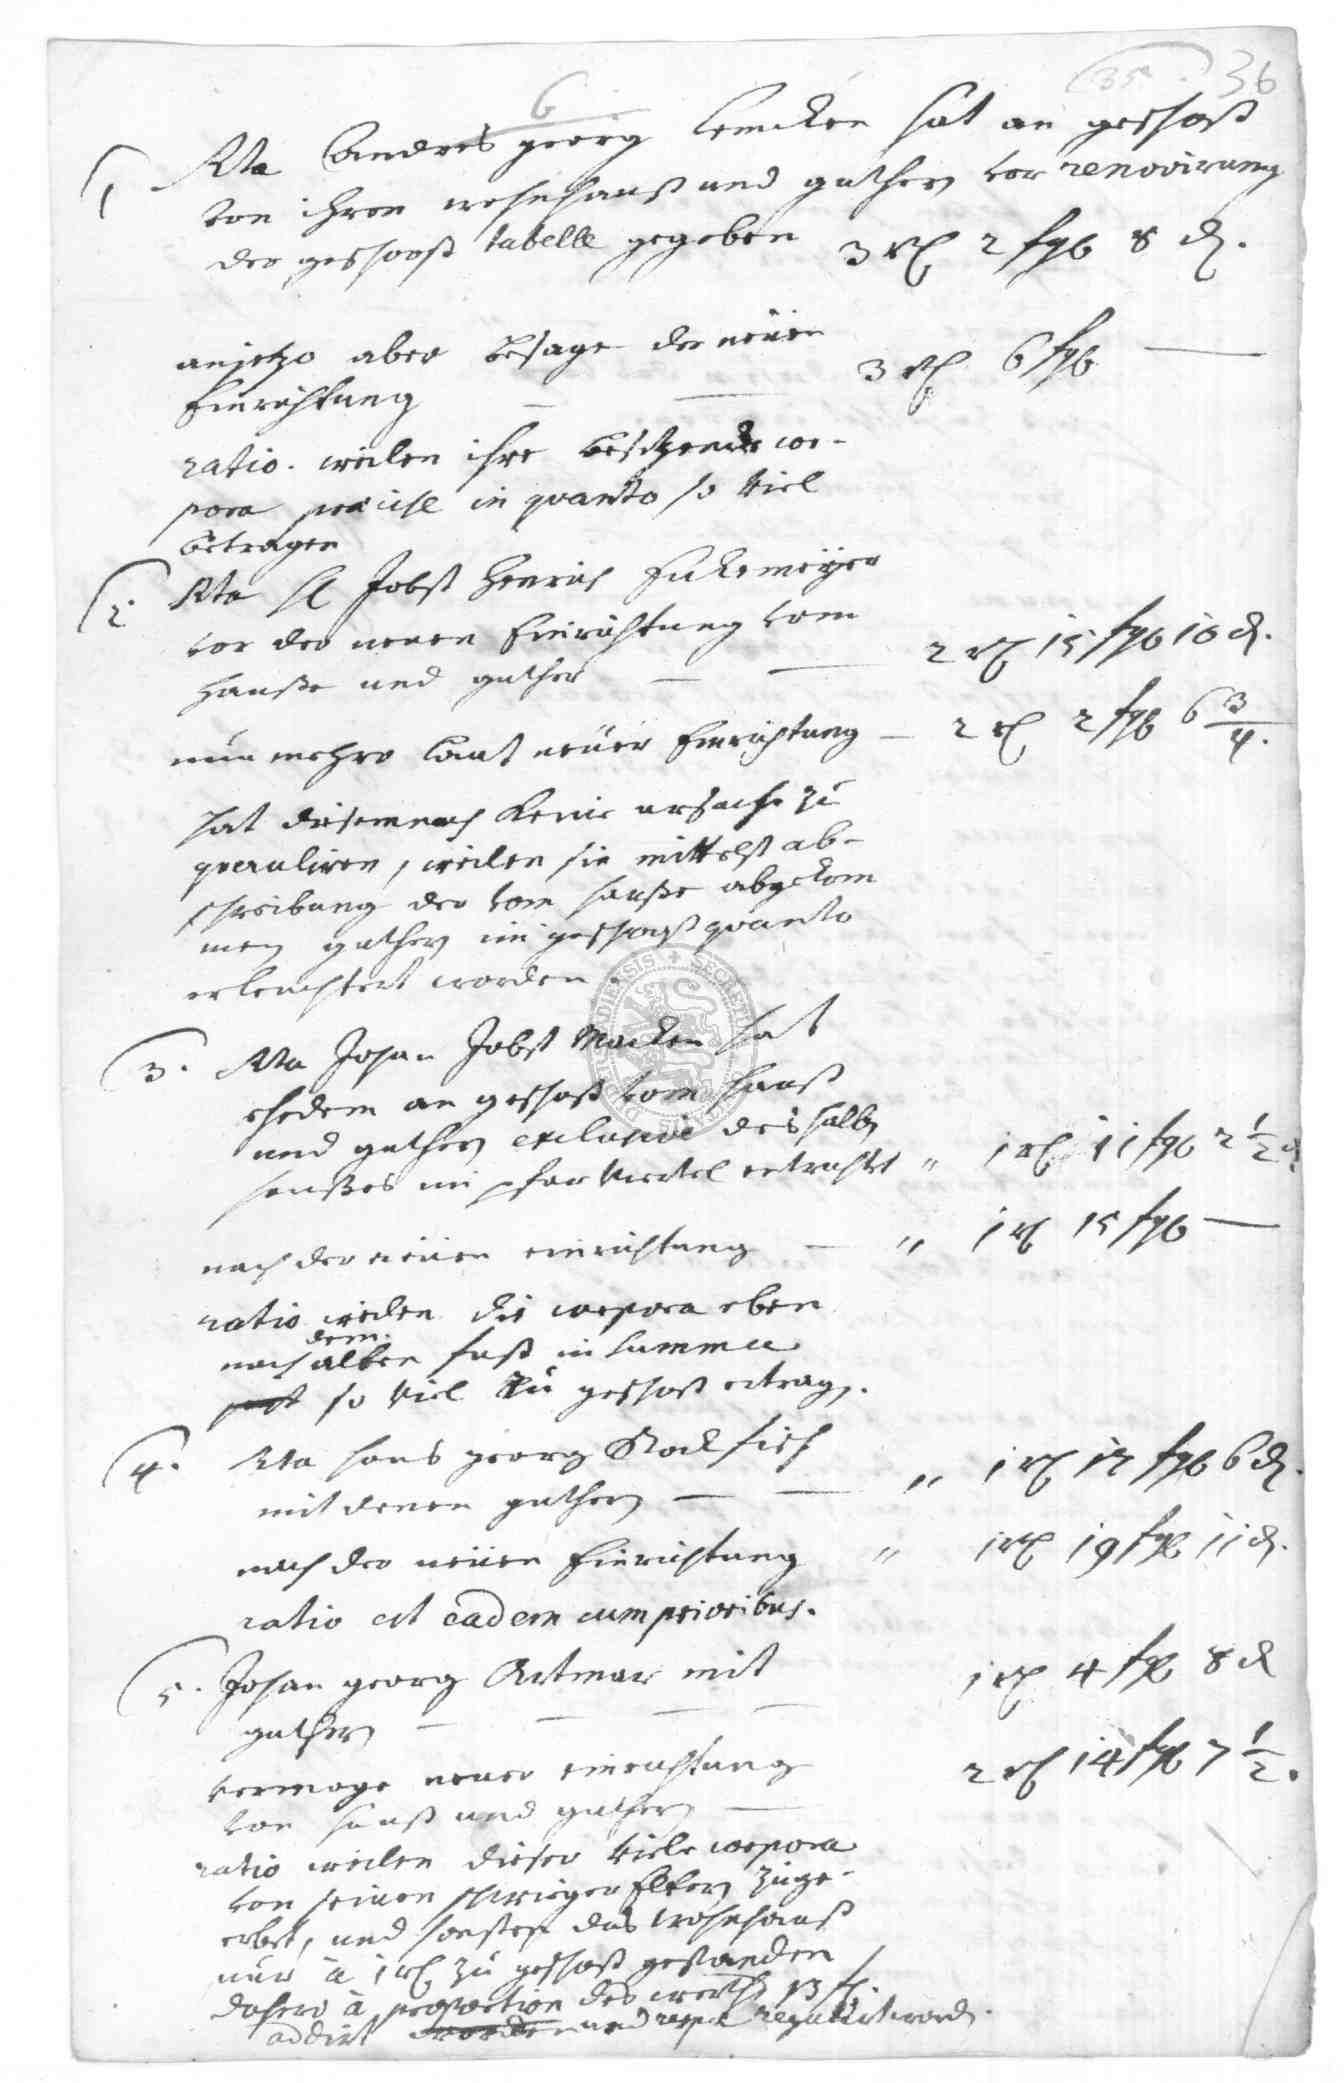 36
6
1 Rta Andres georg Lemcken hat an geschoß
von ihren wohnhauß und guthern vor renovirung
der geschoß tabelle gegeben 3 rl 2 sgl 8 d.
anjetzo aber besage der neüen
Einrichtung — — 3 rl 6 sgl —
ratio. weilen ihre besitzende cor-
pora praecise in quanto so viel
betragen
2. Rta sl Jobst Henrich
vor der neuen Einrichtung vom
Hauße und guther — — 2 rl 15 sgl 10 d.
nun mehro laut neüer Einrichtung — 2 rl 2 sgl 6 3/4.
hat diesemnach keine ursache zu
queruliren, weilen sie mittelst ab-
schreibung der vom hauße abgekom
men guthern im geschoß quanto
erleuchtert worden.
3. Rta Johan Jobst Macken hat
ehedem an geschoß vom hauß
und guthern exclusive des halben
haußes im pfar viertel entrichtet " 1 rl 11 sgl 2 1/2 d
nach der neüen einrichtung — " 1 rl 15 sgl —
ratio weilen die corpora eben
dem.
nach alten fast in summa
so viel zu geschoß ertragen.
4. Rta Hans georg Stockfisch
mit denen guthern — — " 1 rl 17 sgl 6 d.
nach der neüen Einrichtung " 1 rl 19 sgl 11 d.
ratio est eadem cum prioribus.
5. Johan georg Artmar mit 1 rl 4 sgl 8 d
guthern — — — —
vermoge neuer einrichtung 2 rl 14 sgl 7 1/2.
von hauß und guthern —
ratio weilen dieser viele corpora
von seinen schwieger Eltern zuge-
erbet, und sonsten das wohnhauß
nur à 1 rl zu geschoß gestanden
dahero à proportion des werths 13 sgl.
addirt worden und